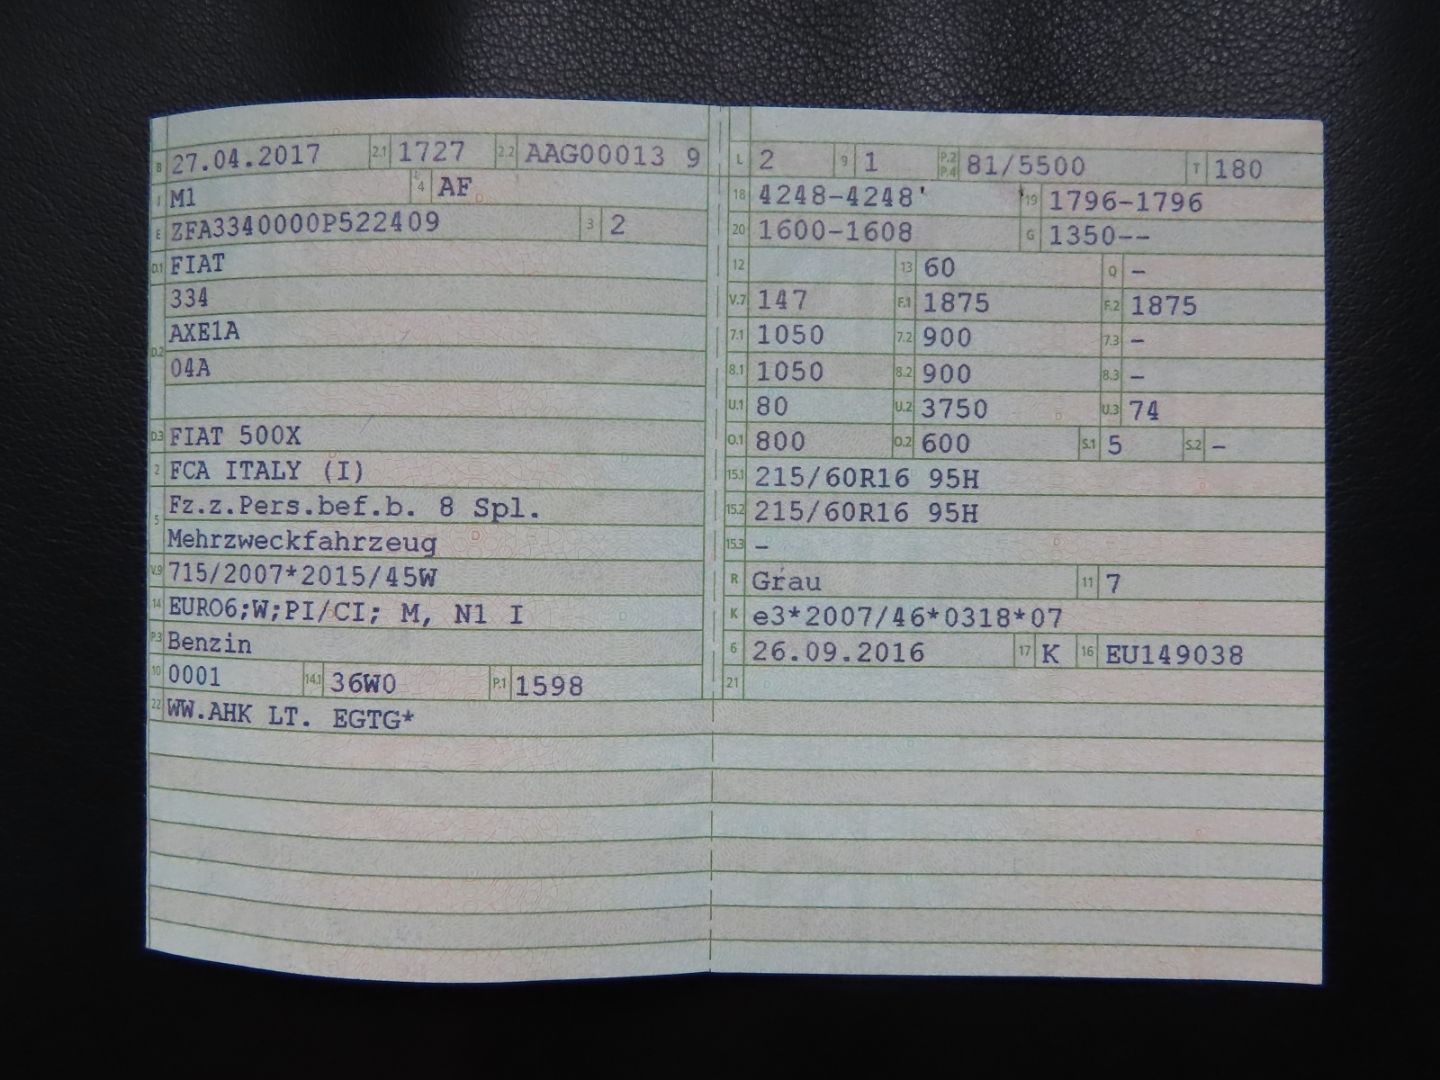 B 27.04.2017 2.1 1727 2.2 AAG00013 9
J M1 4 AF
E ZFA3340000P522409 3 2
D.1 FIAT
334
D.2 AXE1A
04A
D.3 FIAT 500X
2 FCA ITALY (I)
5 Fz.z.Pers.bef.b. 8 Spl.
Mehrzweckfahrzeug
V.9 715/2007*2015/45W
14 EURO6;W;PI/CI; M, N1 I
P.3 Benzin
10 0001 14.1 36W0 P.1 1598
22 WW.AHK LT. EGTG*
L 2 9 1 P.2 P.4 81/5500 T 180
18 4248-4248 19 1796-1796
20 1600-1608 G 1350--
12 13 60 Q -
V.7 147 F.1 1875 F.2 1875
7.1 1050 7.2 900 7.3 -
8.1 1050 8.2 900 8.3 -
U.1 80 U.2 3750 U.3 74
O.1 800 O.2 600 S.1 5 S.2 -
15.1 215/60R16 95H
15.2 215/60R16 95H
15.3 -
R Grau 11 7
K e3*2007/46*0318*07
6 26.09.2016 17 K 16 EU149038
21